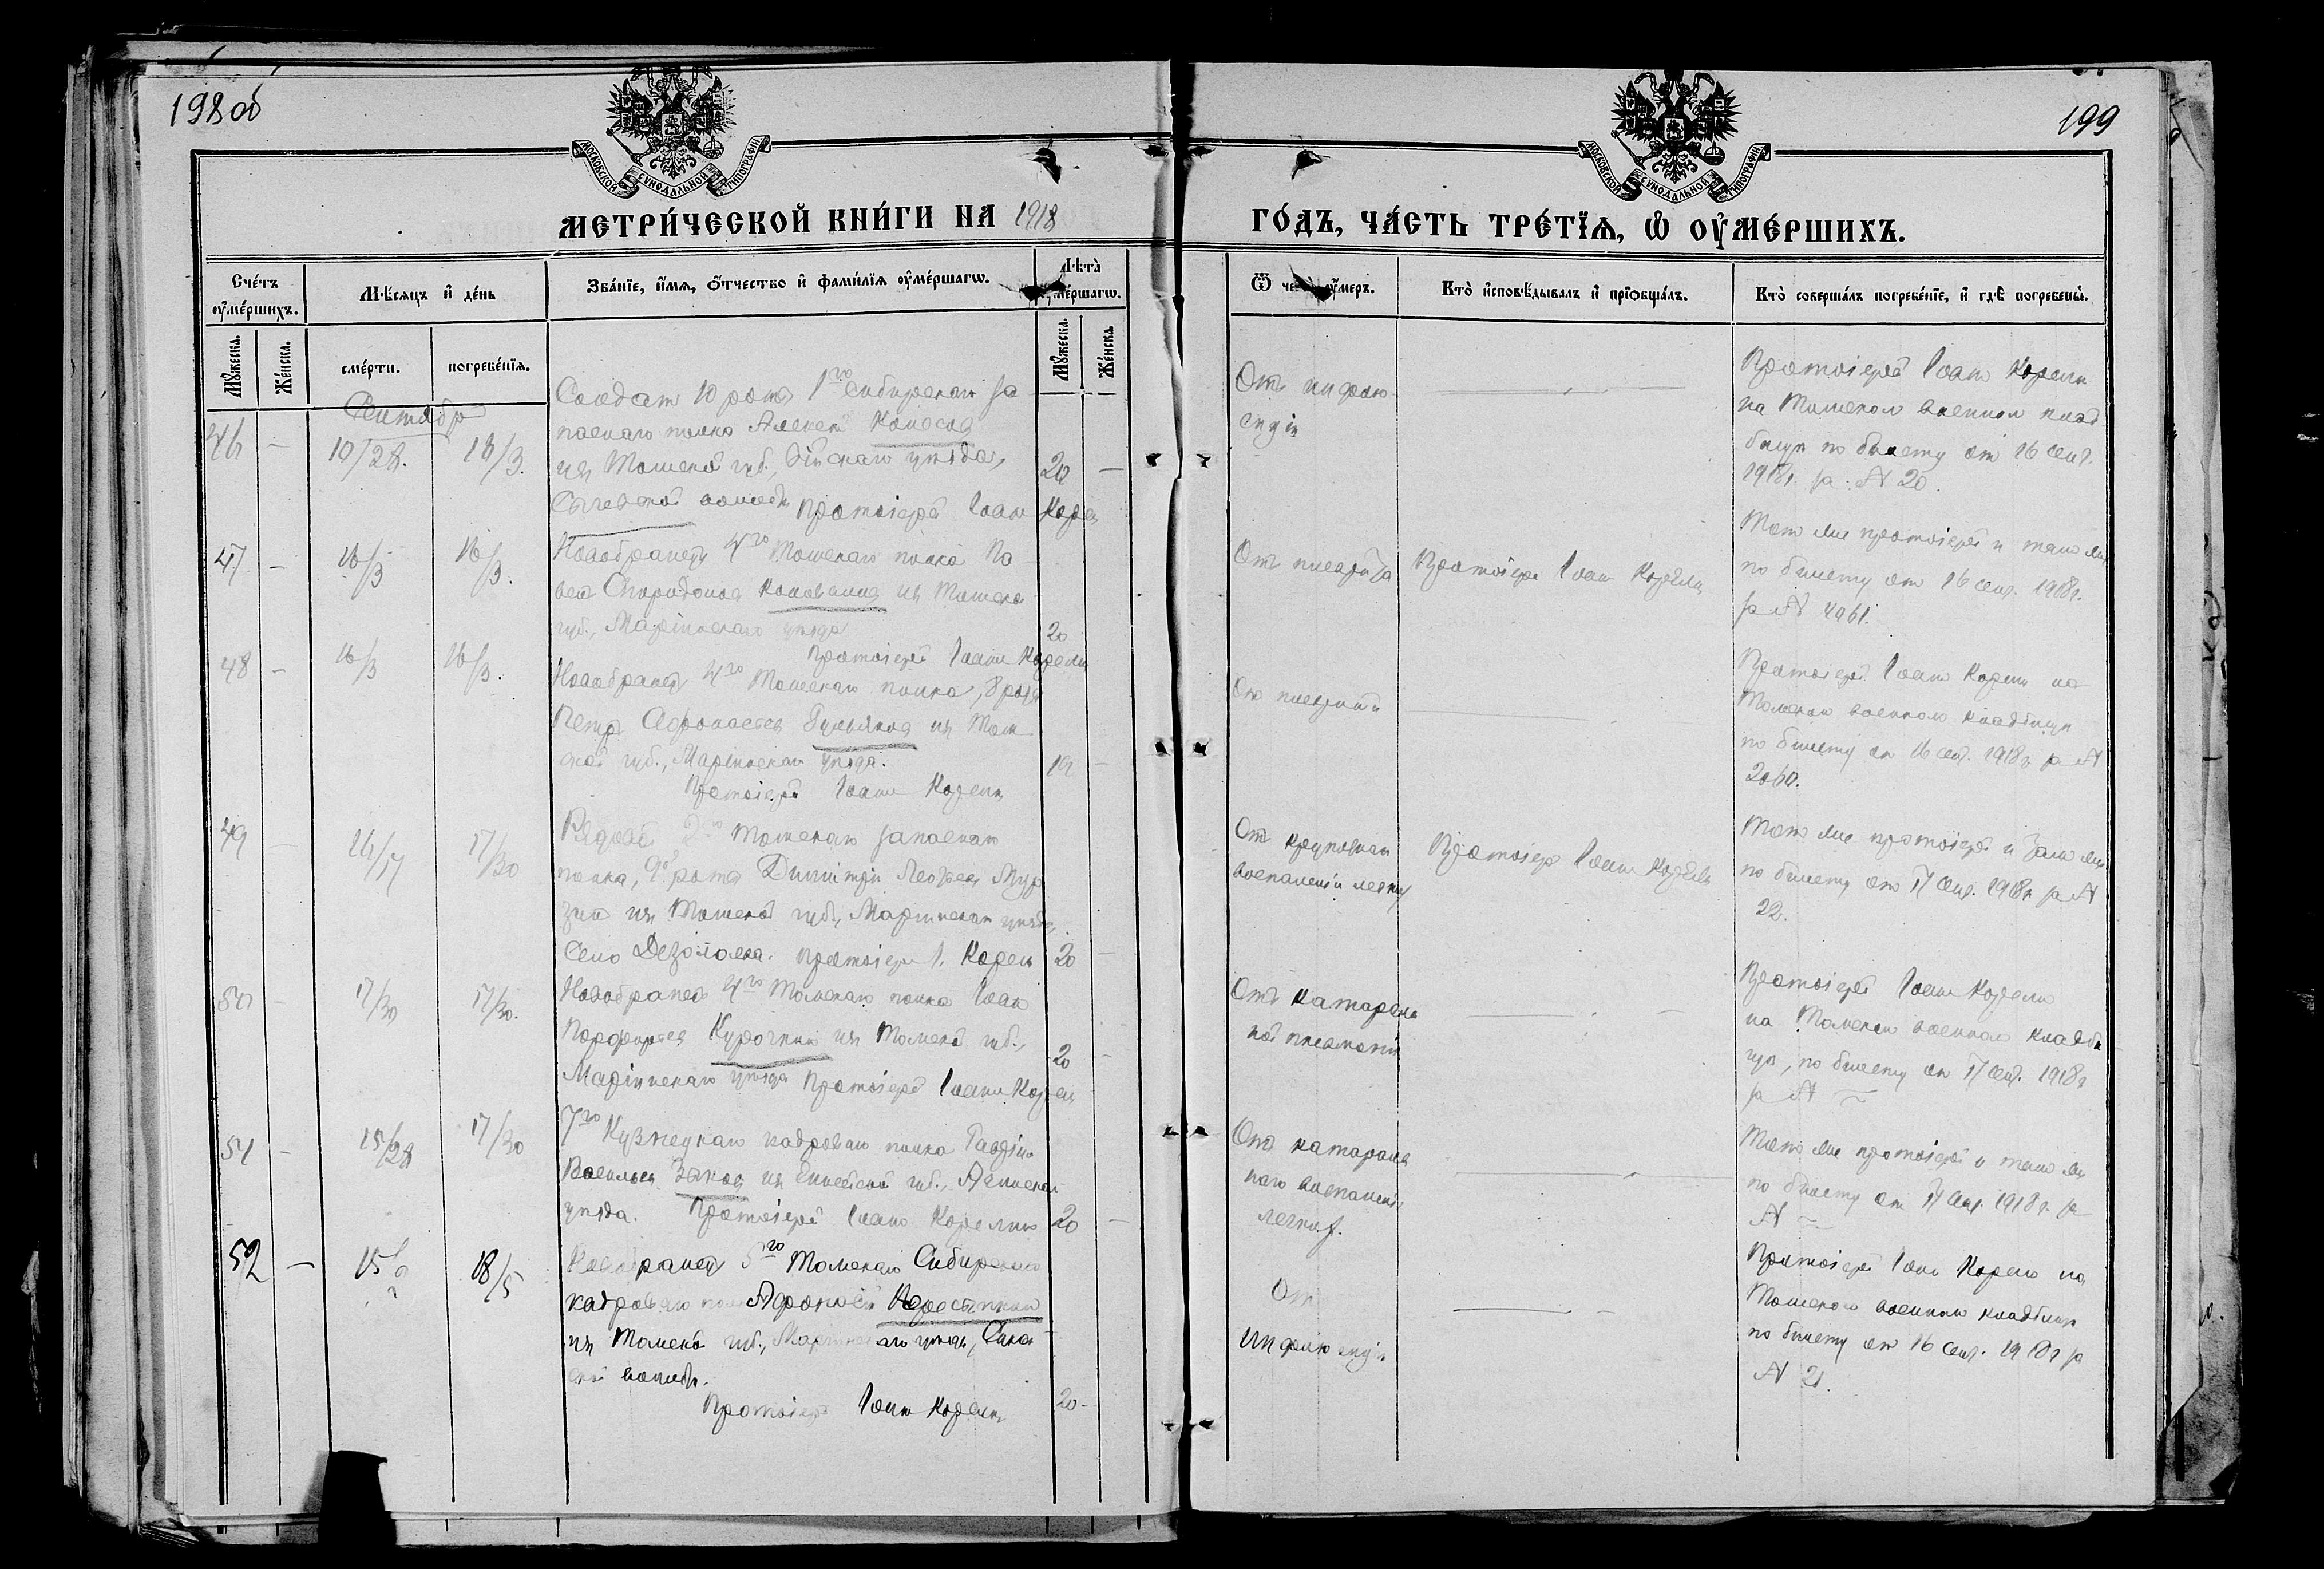 198 об
199
МОСКОВСКОЙ СУНОДАЛЬНОЙ ТИПОГРАФІИ
МОСКОВСКОЙ СУНОДАЛЬНОЙ ТИПОГРАФІИ
МЕТРИ́ЧЕСКОЙ КНИ́ГИ НА 1918
ГО́ДЪ, ЧА́СТЬ ТРЕ́ТЇѦ, Ѡ҆ ОУ҆МЕ́РШИХЪ.
Сче́тъ оу҆ме́ршихъ.
Мꙋ́жеска.
Же́нска.
Мѣ́сѧцъ и҆ де́нь
сме́рти.
погребе́нїѧ.
Зва́нїе, и҆́мѧ, ѻ҆́тчество и҆ фами́лїѧ оу҆ме́ршагѡ.
Лѣ́та оу҆ме́ршагѡ.
Мꙋ́жеска.
Же́нска.
Ѿ чегѡ̀ оу҆́меръ.
Кто̀ и҆сповѣ́дывалъ и҆ прїѡбща́лъ.
Кто̀ соверша́лъ погребе́нїе, и҆ гдѣ̀ погребены̀.
Сентябрь
46 —
10/28.
16/3.
Солдат 10 роты 1го Сибирскаго за
паснаго полка Алексей
из Томской губ., Бійскаго уезда,
Сычевской волости Протоіерей Іоанн Корелин
20 —
От инфлю
энціи
Протоіерей Іоанн Корелин
на Томском военном клад
бищи по билету от 16 сент.
1918 г. за № 20.
47 —
16/3
16/3.
Новобранец 4го Томскаго полка Па
вел Спиридонов Коновалов из Томской
губ., Маріинскаго уезда
20
Протоіерей Іоанн Корелин
От плеврита
Протоіерей Іоанн Корелин
Тот же протоіерей и там же
по билету от 16 сент. 1918 г.
за № 4961.
48 —
16/3
16/3.
Новобранец 4го Томскаго полка, 8 роты
Петр Афонасьев из Том
ской губ., Маріинскаго уезда.
19 —
Протоіерей Іоанн Корелин
От
Протоіерей Іоанн Корелин на
Томском военном кладбищи
по билету от 16 сент. 1918 г. за №
2060.
49 —
17/30
Рядовой 2го Томскаго запаснаго
полка, 9ой роты Димитрій Мур
зин из Томской губ., Маріинскаго уезда,
село Протоіерей І. Корелин
20 —
От крупознаго
воспаленія легких
Протоіерей Іоанн Корелин
Тот же протоіерей и там же
по билету от 17 сент. 1918 г. за №
22.
50 —
17/30
17/30.
Новобранец 4го Томскаго полка Іоан
Курочкин из Томской губ.,
Маріинскаго уезда Протоіерей Іоанн Корелин
20 —
От катараль
ной пневмоніи
Протоіерей Іоанн Корелин
на Томском военном кладби
щи, по билету от 17 сент. 1918 г.
за № ~
51 —
15/28
17/30
7го Кузнецкаго кадроваго полка
Васильев Зыков из Енисейской губ., Ачинскаго
уезда. Протоіерей Іоанн Корелин
20 —
От катараль
наго воспаленія
легких.
Тот же протоіерей и там же
по билету от 17 сент. 1918 г. за
№ ~
52 —
15/
18/5
Новобранец 5го Томскаго Сибирскаго
кадроваго полка Афонасій
из Томской губ., Маріинскаго уезда,
волости.
20 —
Протоіерей Іоанн Корелин
От
инфлюэнціи
Протоіерей Іоанн Корелин на
Томском военном кладбищи
по билету от 16 сент. 1918 г. за
№ 21.